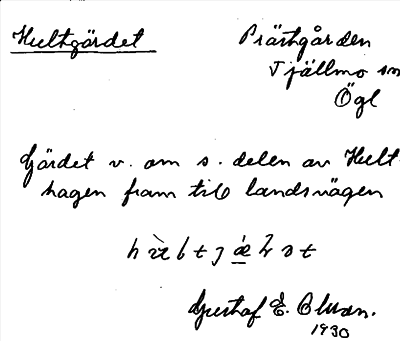 Hultgärdet
Prästgården
Tjällmo sn
Ögl
Gärdet v. om s. delen av Hult-
hagen fram till landsvägen
Gustaf E. Olsson.
1930